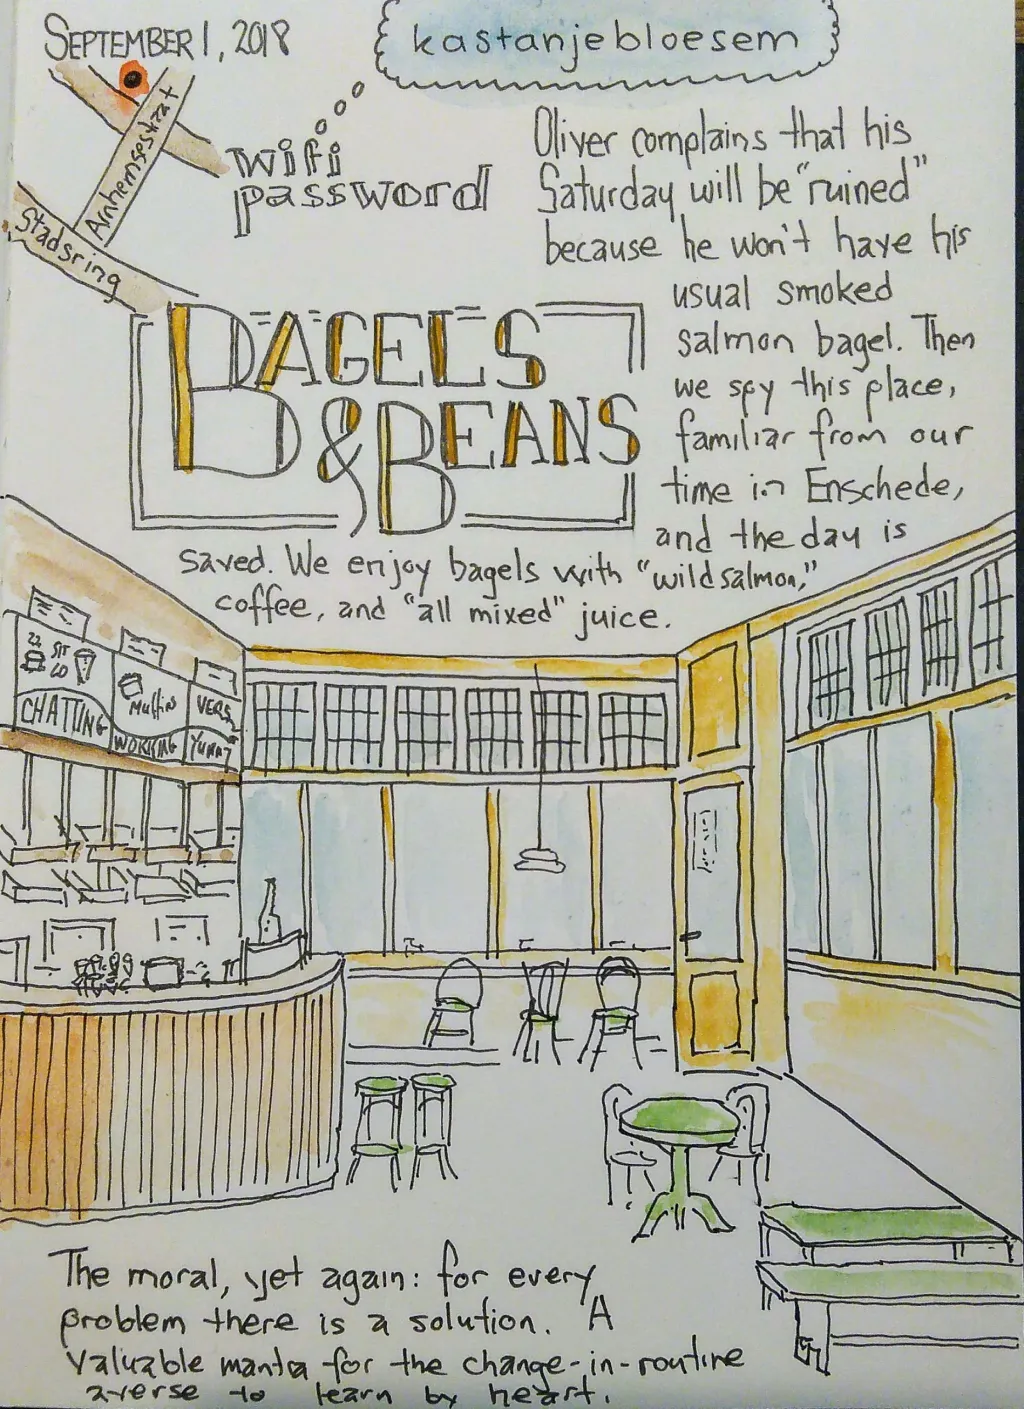 SEPTEMBER 1, 2018
kastanjebloesem
wifi
password
Arnhemsestraat
Stadsring
Oliver complains that his
Saturday will be "ruined"
because he won't have his
usual smoked
salmon bagel. Then
we spy this place,
familiar from our
time in Enschede,
and the day is
saved. We enjoy bagels with "wild salmon,"
coffee, and "all mixed" juice.
BAGELS
& BEANS
CHATTING
Muffins
WORKING
VERS
YUMMY
The moral, yet again: for every
problem there is a solution. A
valuable mantra for the change-in-routine
averse to learn by heart.